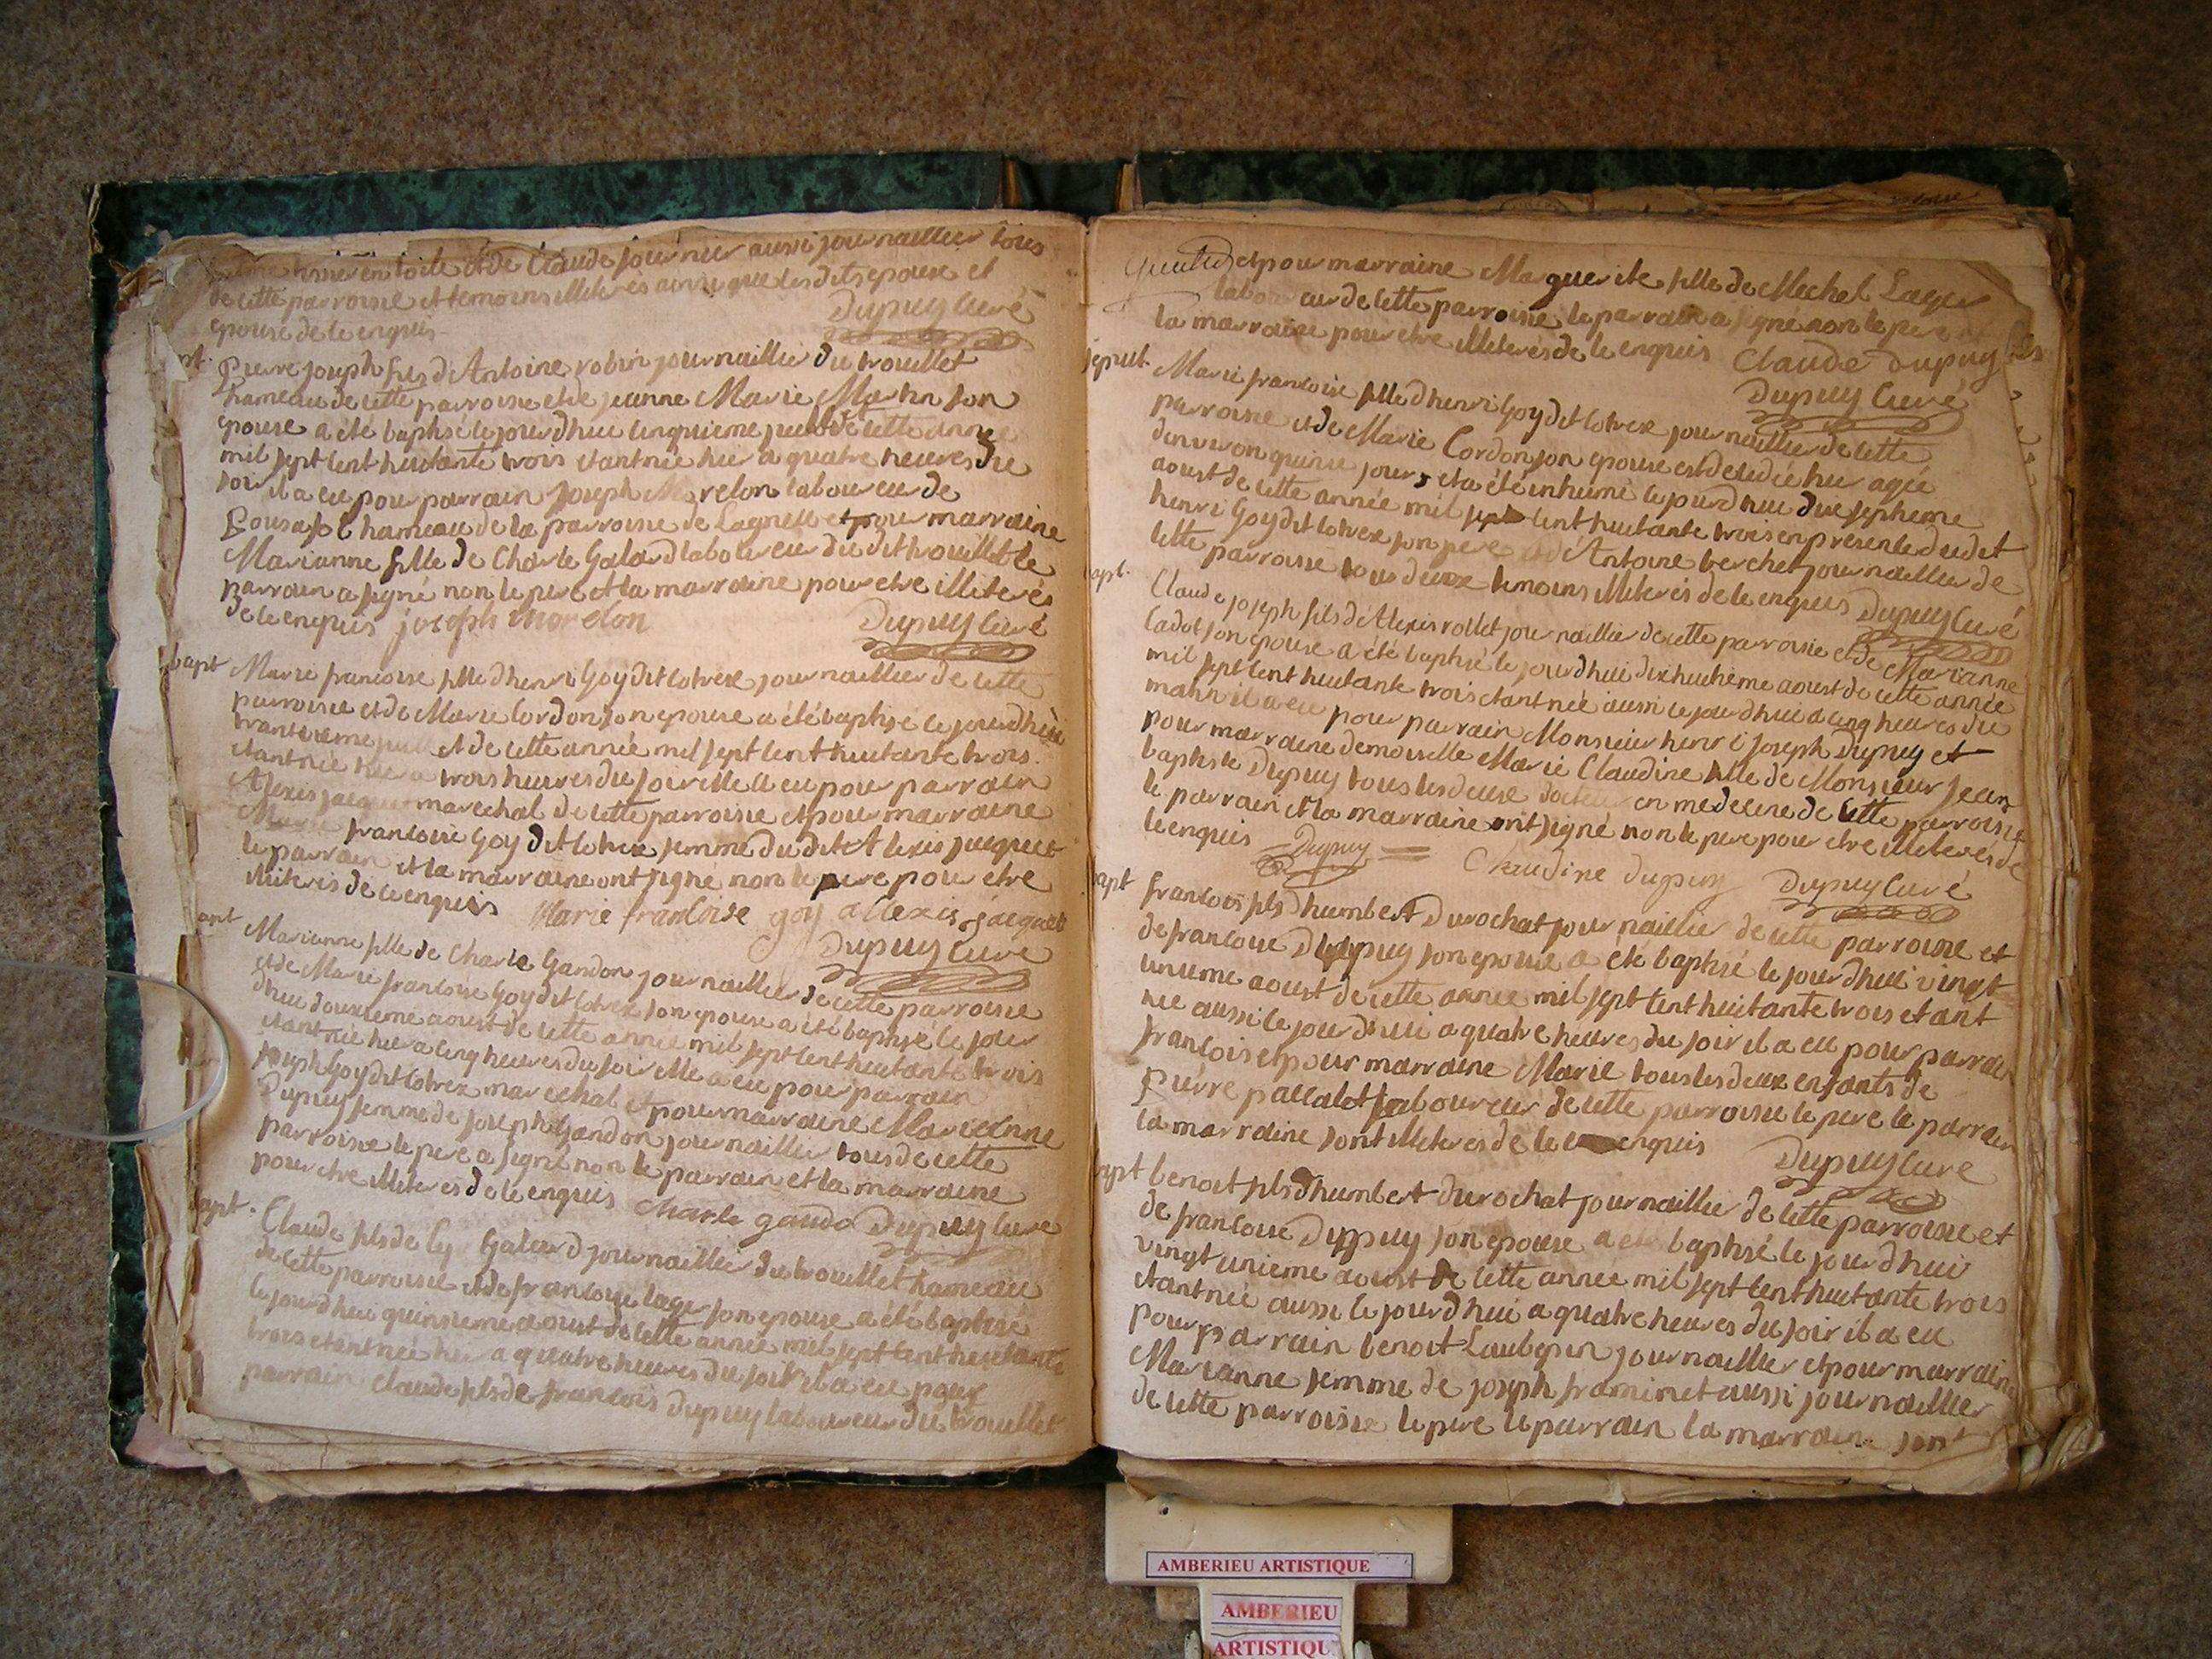 tisser en toile et de Claude journier aussi journaillier tous
de cette parroisse et temoins illiterés ainsi que lesdits epoux et
epouse de ce enquis
Dupuy curé
pt.
Pierre joseph fils d'Antoine robin journaillier du trouillet
hameau de cette parroisse et de jeanne Marie Martin son
epouse a été baptisé le jourdhui cinquieme juillet de cette année
mil sept cent huitante trois etant née hier a quatre heures du
soir il a eu pour parrain joseph Morelon laboureur de
hameau de la parroisse de Lagnieu et pour marraine
Marianne fille de Charle Galard laboureur du dit trouillet le
parrain a signé non le pere et la marraine pour etre illiterés
de ce enquis joseph morelon
Dupuy curé
bapt
Marie francoise fille d'henri Goy dit lotrex journaillier de cette
parroisse et de Marie Cordon son epouse a été baptisé le jourdhui
trantieme juillet de cette année mil sept cent huitante trois
etant née hier a trois heures du soir elle a eu pour parrain
Alexis jacquet marechal de cette parroisse et pour marraine
Marie francoise Goy dit lotrex femme du dit Alexis jacquet
le parrain et la marraine ont signé non le pere pour etre
illiterés de ce enquis Marie francoise goy allexis jacquet
Dupuy curé
apt
Marianne fille de Charle Gandon journaillier de cette parroisse
et de Marie francoise Goy dit lotrex son epouse a été baptisé le jour
dhui douzieme aoust de cette année mil sept cent huitante trois
etant née hier a cinq heures du soir elle a eu pour parrain
joseph Goy dit lotrex marechal et pour marraine Marianne
Dupuy femme de joseph Gandon journaillier tous de cette
parroisse le pere a signé non le parrain et la marraine
pour etre illiterés de ce enquis Charle gando Dupuy curé
apt.
Claude fils de Galard journaillier du trouillet hameau
de cette parroisse et de francoise lager son epouse a été baptisé
le jourdhui quinsieme aoust de cette année mil sept cent huitante
trois etant née hier a quatre heures du soir il a eu pour
parrain Claude fils de francois Dupuy laboureur du trouillet
et pour marraine Marguerite fille de Mechel Lager
laboureur de cette parroisse le parrain a signé non le pere
la marraine pour etre illiterés de ce enquis Claude Dupuy
Dupuy curé
sepult
Marie francoise fille d'henri Goy dit lotrex journaillier de cette
parroisse et de Marie Cordon son epouse est decedée hier agée
d'environ quinse jours et a été inhumé le jourdhui dixseptieme
aoust de cette année mil sept cent huitante trois en presence dudit
henri Goy dit lotrex son pere et d'Antoine berchet journaillier de
cette parroisse tous deux temoins illiterés de ce enquis Dupuy curé
apt.
Claude joseph fils d'Alexis rollet journaillier de cette parroisse et de Marianne
Cadot son epouse a été baptisé le jourdhui dixhuitieme aoust de cette année
mil sept cent huitante trois etant née aussi le jourdhui a cinq heures du
matin il a eu pour parrain Monsieur henri joseph Dupuy et
pour marraine demoiselle Marie Claudine fille de Monsieur jean
baptiste Dupuy tous les deux docteur en medecine de cette parroisse
le parrain et la marraine ont signé non le pere pour etre illiterés de
ce enquis Dupuy Claudine dupuy Dupuy curé
apt
francois fils d'humbert Durochat journaillier de cette parroisse et
de francoise Dupuy son epouse a été baptisé le jourdhui vingt
unieme aoust de cette année mil sept cent huitante trois etant
née aussi le jourdhui a quatre heures du soir il a eu pour parrain
francois et pour marraine Marie tous les deux enfants de
pierre paccalet laboureur de cette parroisse le pere le parrain
la marraine sont illiterés de ce enquis
Dupuy curé
apt
benoit fils d'humbert durochat journaillier de cette parroisse et
de francoise Duppuy son epouse a été baptisé le jourdhui
vingt unieme aoust de cette année mil sept cent huitante trois
etant née aussi le jourdhui a quatre heures du soir il a eu
pour parrain benoit Laubepin journaillier et pour marraine
Marianne femme de joseph framinet aussi journaillier
de cette parroisse le pere le parrain la marraine sont
AMBERIEU ARTISTIQUE
AMBERIEU
ARTISTIQU